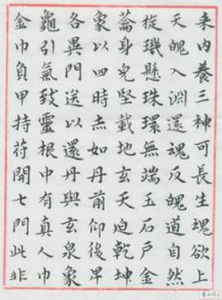 来内養三神可長生魂欲上
天魄入淵還魂反魄道自然
旋璣懸珠環無端玉石戶金
籥身完堅載地玄天迫乾坤
象以四時赤如丹前仰後卑
各異門送以還丹與玄泉象
龜引氣致靈根中有真人巾
金巾負甲持苻開七門此非